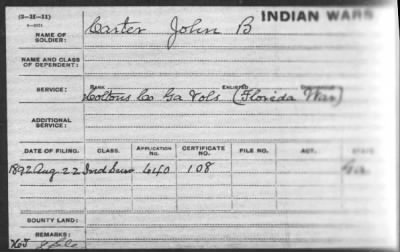 (3-H-II)
INDIAN WARS
NAME OF SOLDIER: Carter John B
NAME AND CLASS OF DEPENDENT:
SERVICE: RANK ENLISTED
Coltons Co Ga Vols (Florida War)
ADDITIONAL SERVICE:
DATE OF FILING. CLASS. APPLICATION No. CERTIFICATE No. FILE NO. ACT. STATE
1892 Aug 22 Ind Surv 640 108 Ga
BOUNTY LAND:
REMARKS: